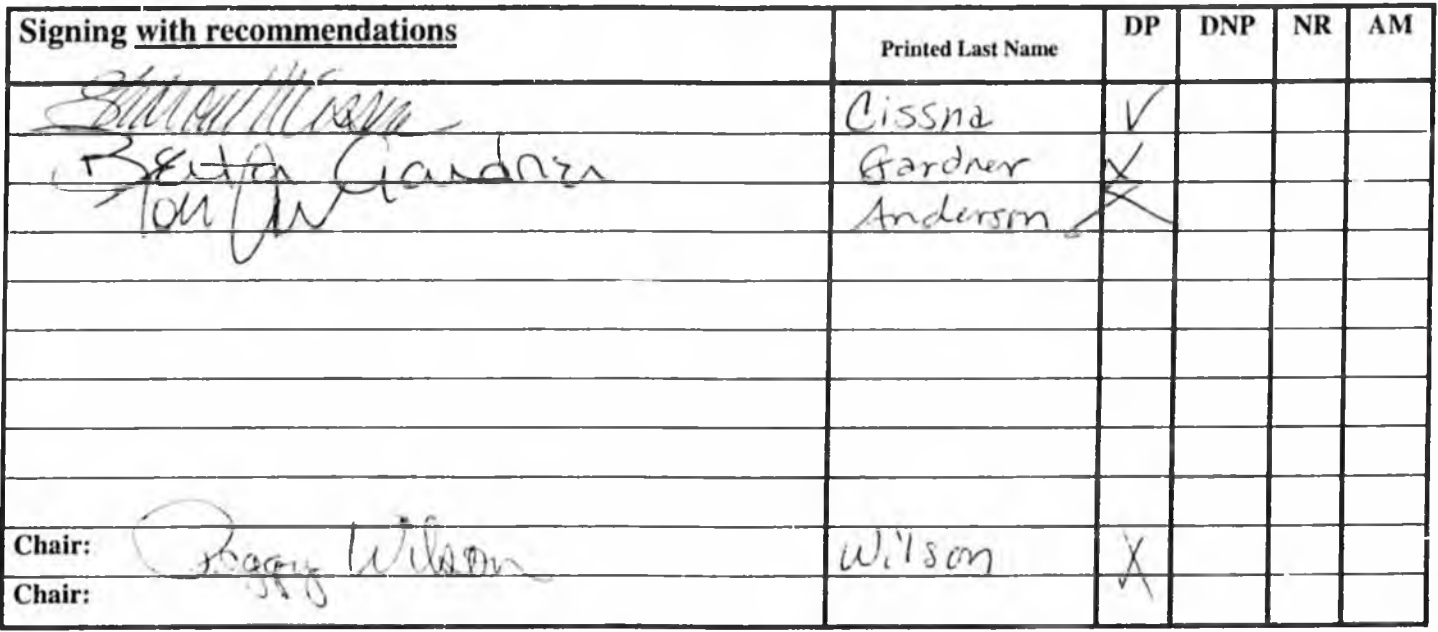 Signing with recommendations Printed Last Name DP DNP NR AM
Cissna V
Berta Gardner Gardner X
Tom Anderson X
Chair: Peggy Wilson Wilson X
Chair: